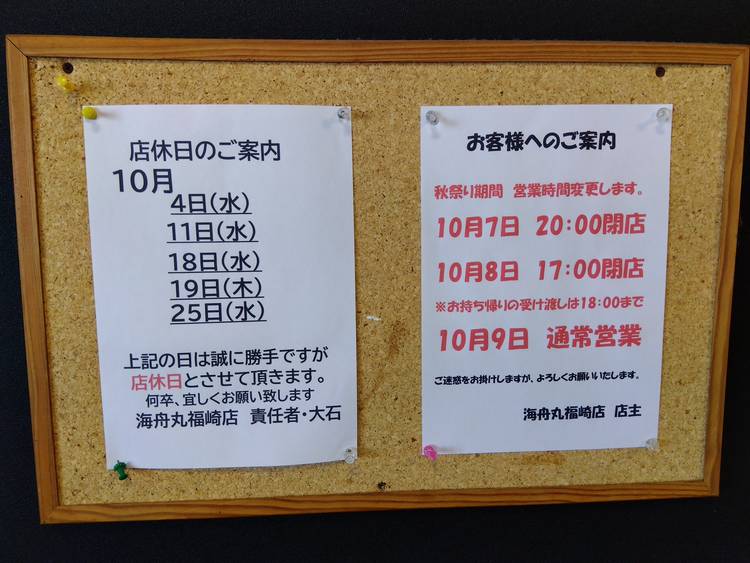 店休日のご案内
10月
4日(水)
11日(水)
18日(水)
19日(木)
25日(水)
上記の日は誠に勝手ですが
店休日とさせて頂きます。
何卒、宜しくお願い致します
海舟丸福崎店 責任者・大石
お客様へのご案内
秋祭り期間 営業時間変更します。
10月7日 20:00閉店
10月8日 17:00閉店
※お持ち帰りの受け渡しは18:00まで
10月9日 通常営業
ご迷惑をお掛けしますが、よろしくお願いいたします。
海舟丸福崎店 店主